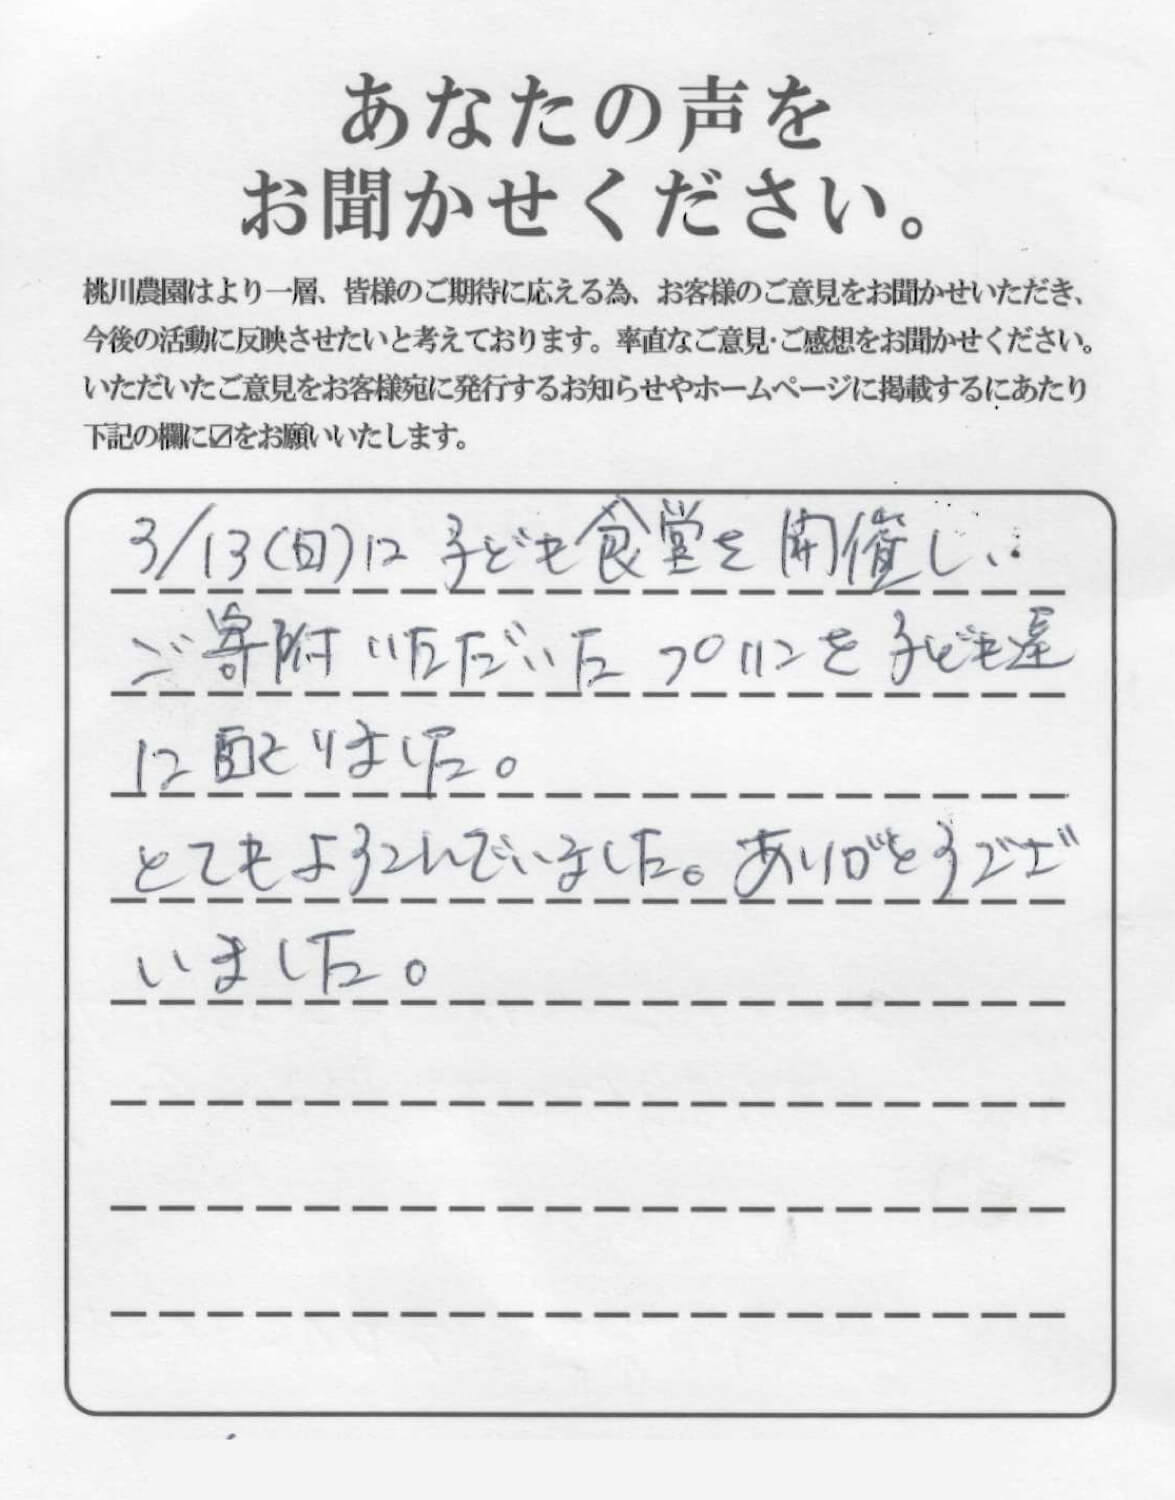 あなたの声を
お聞かせください。
桃川農園はより一層、皆様のご期待に応える為、お客様のご意見をお聞かせいただき、
今後の活動に反映させたいと考えております。率直なご意見・ご感想をお聞かせください。
いただいたご意見をお客様宛に発行するお知らせやホームページに掲載するにあたり
下記の欄に☑をお願いいたします。
3/13(日)に子ども食堂を開催し、
ご寄附いただいたプリンを子ども達
に配りました。
とてもよろこんでいました。ありがとうござ
いました。